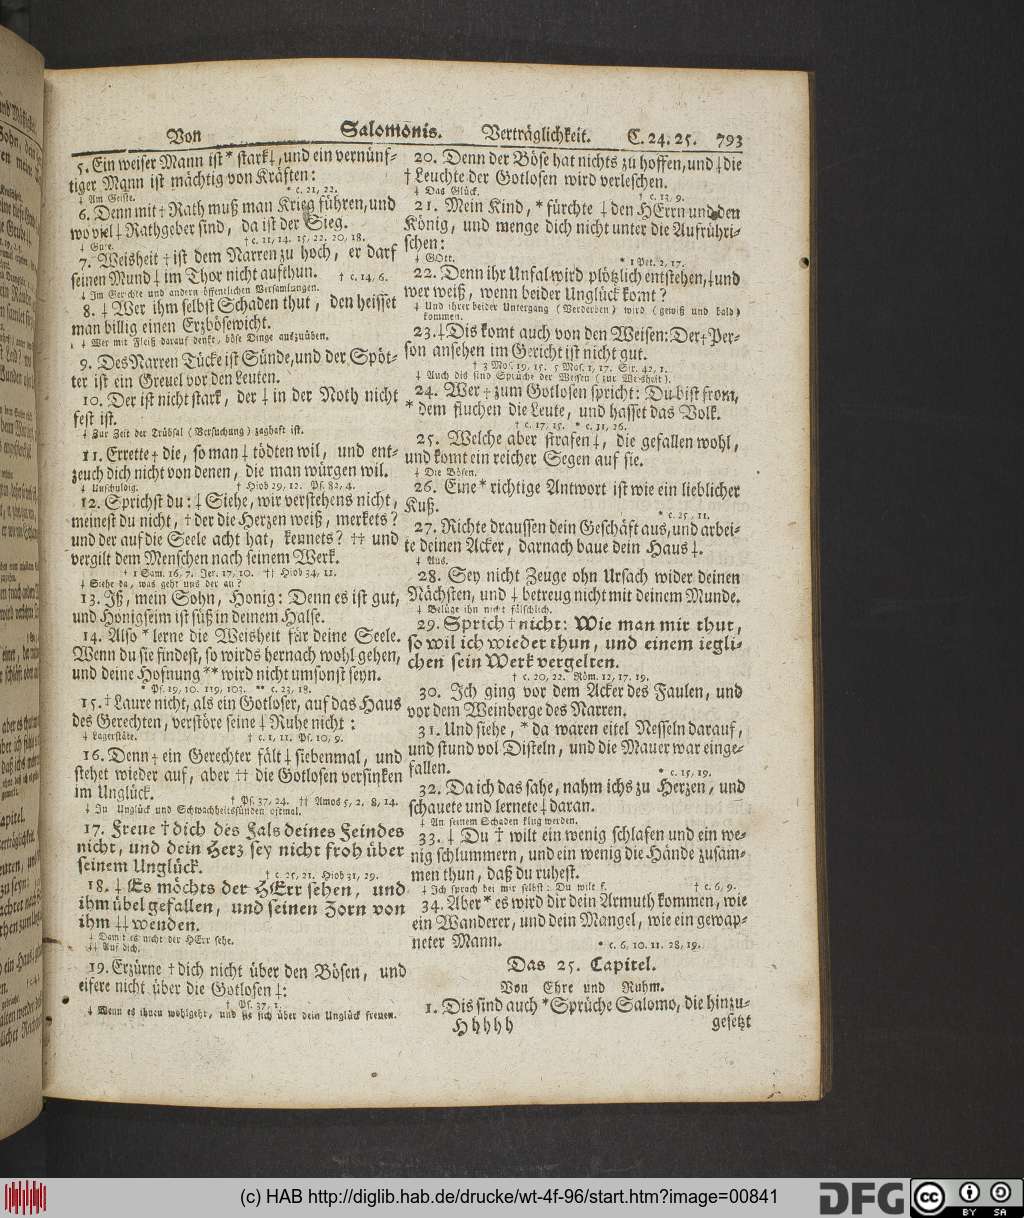 Von Salomonis. Verträglichkeit. C. 24. 25. 793
5. Ein weiser Mann ist * stark ‡, und ein vernünf-
tiger Mann ist mächtig von Kräften:
* c. 21, 22.
‡ Am Geiste.
6. Denn mit † Rath muß man Krieg führen, und
wo viel ‡ Rathgeber sind, da ist der Sieg.
† c. 11, 14. 15, 22. 20, 18.
‡ Gute.
7. Weisheit † ist dem Narren zu hoch, er darf
seinen Mund ‡ im Thor nicht aufthun. † c. 14, 6.
‡ Im Gerichte und andern öffentlichen Versamlungen.
8. ‡ Wer ihm selbst Schaden thut, den heisset
man billig einen Erzbösewicht.
‡ Wer mit Fleiß darauf denkt, böse Dinge auszuüben.
9. Des Narren Tücke ist Sünde, und der Spöt-
ter ist ein Greuel vor den Leuten.
10. Der ist nicht stark, der ‡ in der Noth nicht
fest ist.
‡ Zur Zeit der Trübsal (Versuchung) zaghaft ist.
11. Errette † die, so man ‡ tödten wil, und ent-
zeuch dich nicht von denen, die man würgen wil.
‡ Unschuldig. † Hiob 29, 12. Ps. 82, 4.
12. Sprichst du: ‡ Siehe, wir verstehens nicht,
meinest du nicht, † der die Herzen weiß, merkets?
und der auf die Seele acht hat, kennets? †† und
vergilt dem Menschen nach seinem Werk.
† 1 Sam. 16, 7. Jer. 17, 10. †† Hiob 34, 11.
‡ Siehe da, was geht uns der an?
13. Iß, mein Sohn, Honig: Denn es ist gut,
und Honigseim ist süß in deinem Halse.
14. Also * lerne die Weisheit für deine Seele.
Wenn du sie findest, so wirds hernach wohl gehen,
und deine Hofnung ** wird nicht umsonst seyn.
* Ps. 19, 10. 119, 103. ** c. 23, 18.
15. † Laure nicht, als ein Gotloser, auf das Haus
des Gerechten, verstöre seine ‡ Ruhe nicht:
‡ Lagerstäte. † c. 1, 11. Ps. 10, 9.
16. Denn † ein Gerechter fält ‡ siebenmal, und
stehet wieder auf, aber †† die Gotlosen versinken
im Unglück.
† Ps. 37, 24. †† Amos 5, 2, 8, 14.
‡ In Unglück und Schwachheitssünden oftmal.
17. Freue † dich des Fals deines Feindes
nicht, und dein Herz sey nicht froh über
seinem Unglück.
† c. 25, 21. Hiob 31, 29.
18. ‡ Es möchts der HErr sehen, und
ihm übel gefallen, und seinen Zorn von
ihm ‡‡ wenden.
‡ Damit es nicht der HErr sehe.
‡‡ Auf dich.
19. Erzürne † dich nicht über den Bösen, und
eifere nicht über die Gotlosen ‡:
† Ps. 37, 1.
‡ Wenn es ihnen wohlgeht, und sie sich über dein Unglück freuen.
20. Denn der Böse hat nichts zu hoffen, und ‡ die
† Leuchte der Gotlosen wird verleschen.
‡ Das Glück. † c. 13, 9.
21. Mein Kind, * fürchte ‡ den HErrn und den
König, und menge dich nicht unter die Aufrühri-
schen:
‡ GOtt. * 1 Pet. 2, 17.
22. Denn ihr Unfal wird plötzlich entstehen, ‡ und
wer weiß, wenn beider Unglück komt?
‡ Und ihrer beider Untergang (Verderben) wird (gewiß und bald)
kommen.
23. ‡ Dis komt auch von den Weisen: Der † Per-
son ansehen im Gericht ist nicht gut.
† 3 Mos. 19, 15. 5 Mos. 1, 17. Sir. 42, 1.
‡ Auch dis sind Sprüche der Weisen (zur Weisheit).
24. Wer † zum Gotlosen spricht: Du bist from,
* dem fluchen die Leute, und hasset das Volk.
† c. 17, 15. * c. 11, 26.
25. Welche aber strafen ‡, die gefallen wohl,
und komt ein reicher Segen auf sie.
‡ Die Bösen.
26. Eine * richtige Antwort ist wie ein lieblicher
Kuß.
* c. 25, 11.
27. Richte draussen dein Geschäft aus, und arbei-
te deinen Acker, darnach baue dein Haus ‡.
‡ Aus.
28. Sey nicht Zeuge ohn Ursach wider deinen
Nächsten, und ‡ betreug nicht mit deinem Munde.
‡ Belüge ihn nicht fälschlich.
29. Sprich † nicht: Wie man mir thut,
so wil ich wieder thun, und einem iegli-
chen sein Werk vergelten.
† c. 20, 22. Röm. 12, 17. 19.
30. Ich ging vor dem Acker des Faulen, und
vor dem Weinberge des Narren.
31. Und siehe, * da waren eitel Nesseln darauf,
und stund vol Disteln, und die Mauer war einge-
fallen.
* c. 15, 19.
32. Da ich das sahe, nahm ichs zu Herzen, und
schauete und lernete ‡ daran.
‡ An seinem Schaden klug werden.
33. ‡ Du † wilt ein wenig schlafen und ein we-
nig schlummern, und ein wenig die Hände zusam-
men thun, daß du ruhest.
‡ Ich sprach bei mir selbst: Du wilt ꝛc. † c. 6, 9.
34. Aber * es wird dir dein Armuth kommen, wie
ein Wanderer, und dein Mangel, wie ein gewap-
neter Mann.
* c. 6, 10. 11. 28, 19.
Das 25. Capitel.
Von Ehre und Ruhm.
1. Dis sind auch * Sprüche Salomo, die hinzu-
Hhhhh gesetzt
(c) HAB http://diglib.hab.de/drucke/wt-4f-96/start.htm?image=00841
DFG
cc BY SA